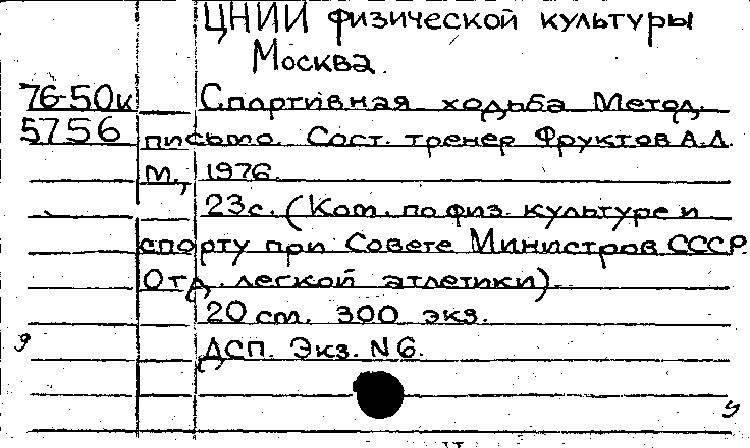 ЦНИИ физической культуры
Москва.
76-50к Спортивная ходьба Метод.
5756 письмо. Сост. тренер Фруктов А.Л.
М., 1976.
23с. (Ком. по физ. культуре и
спорту при Совете Министров СССР.
Отд. легкой атлетики).
20 см. 300 экз.
ДСП. Экз. N6.